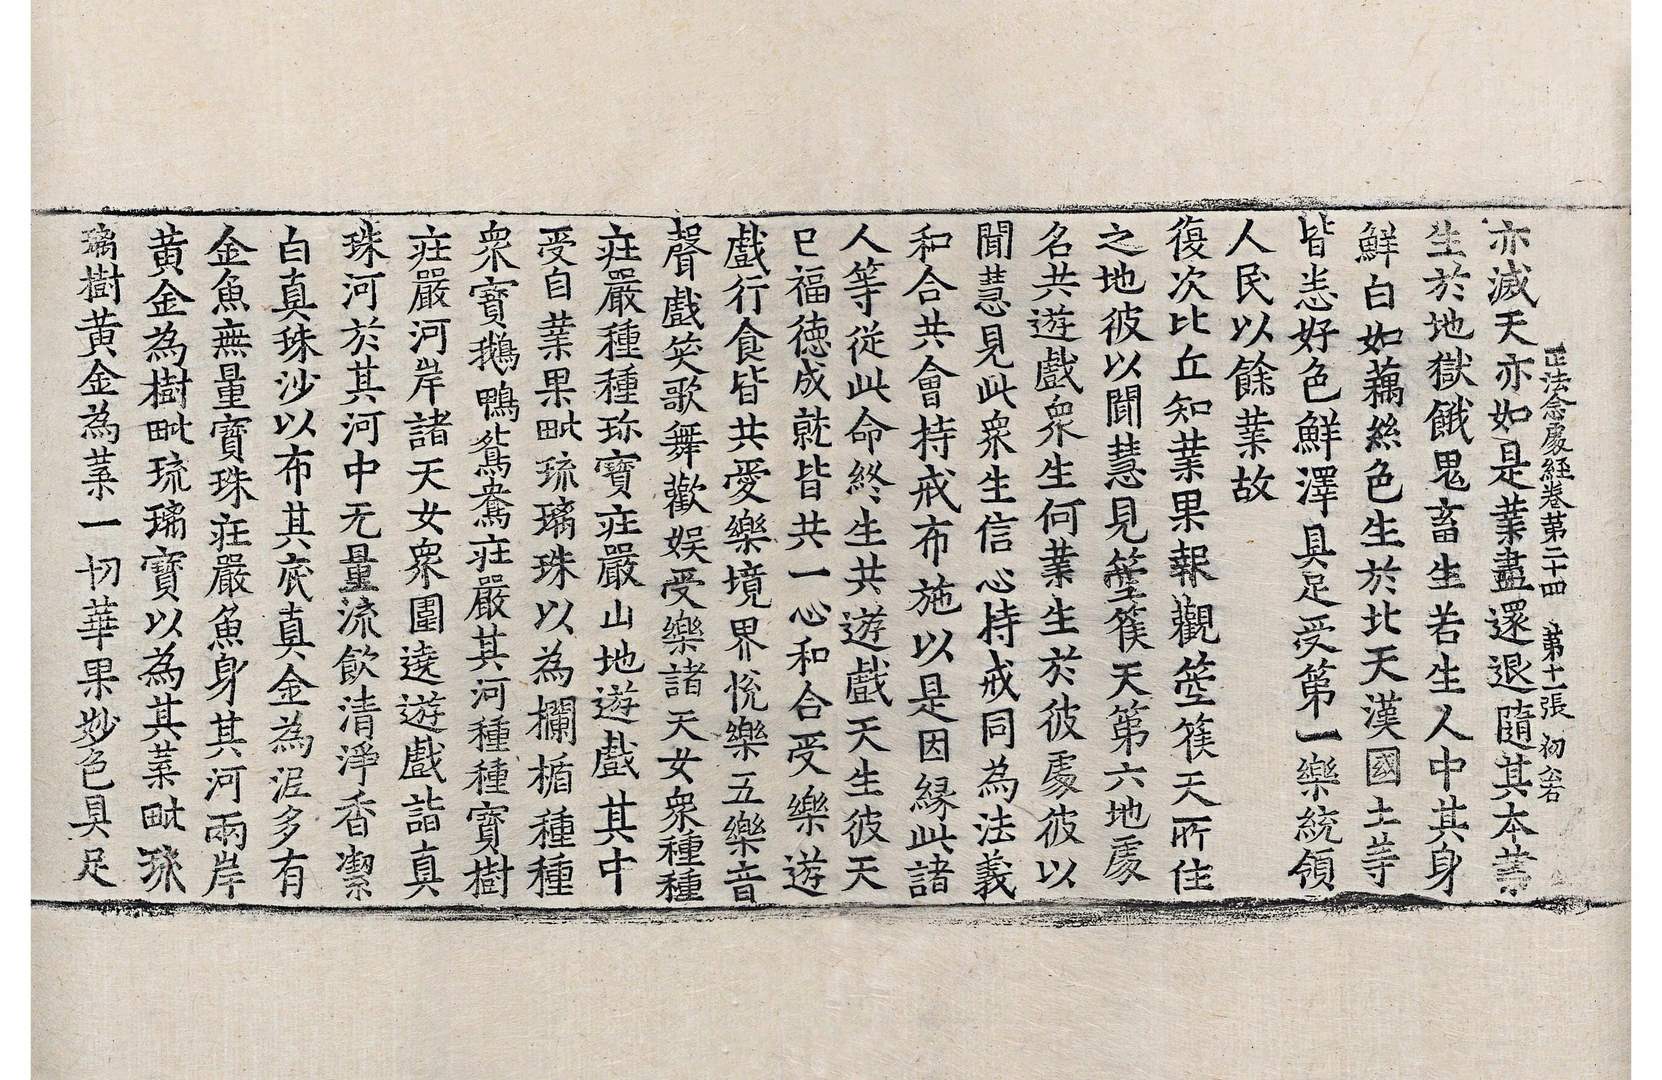 正法念處經卷第二十四 第十一張 初
亦滅天亦如是業盡還退隨其本業
生於地獄餓鬼畜生若生人中其身
鮮白如藕絲色生於北天漢國土等
皆恙好色鮮澤具足受第一樂統領
人民以餘業故
復次比丘知業果報觀箜篌天所住
之地彼以聞慧見箜篌天第六地處
名共遊戲衆生何業生於彼處彼以
聞慧見此衆生信心持戒同為法義
和合共會持戒布施以是因緣此諸
人等從此命終生共遊戲天生彼天
已福德成就皆共一心和合受樂遊
戲行食皆共愛樂境界悅樂五樂音
聲戲笑歌舞歡娛受樂諸天女衆種種
莊嚴種種珎寶莊嚴山地遊戲其中
受自業果毗琉璃珠以為欄楯種種
衆寶鵝鴨鴛鴦莊嚴其河種種寶樹
莊嚴河岸諸天女衆圍遶遊戲詣真
珠河於其河中无量流飲清淨香潔
白真珠沙以布其底真金為泥多有
金魚無量寶珠莊嚴魚身其河兩岸
黃金為樹毗琉璃寶以為其葉毗琉
璃樹黃金為葉一切華果妙色具足